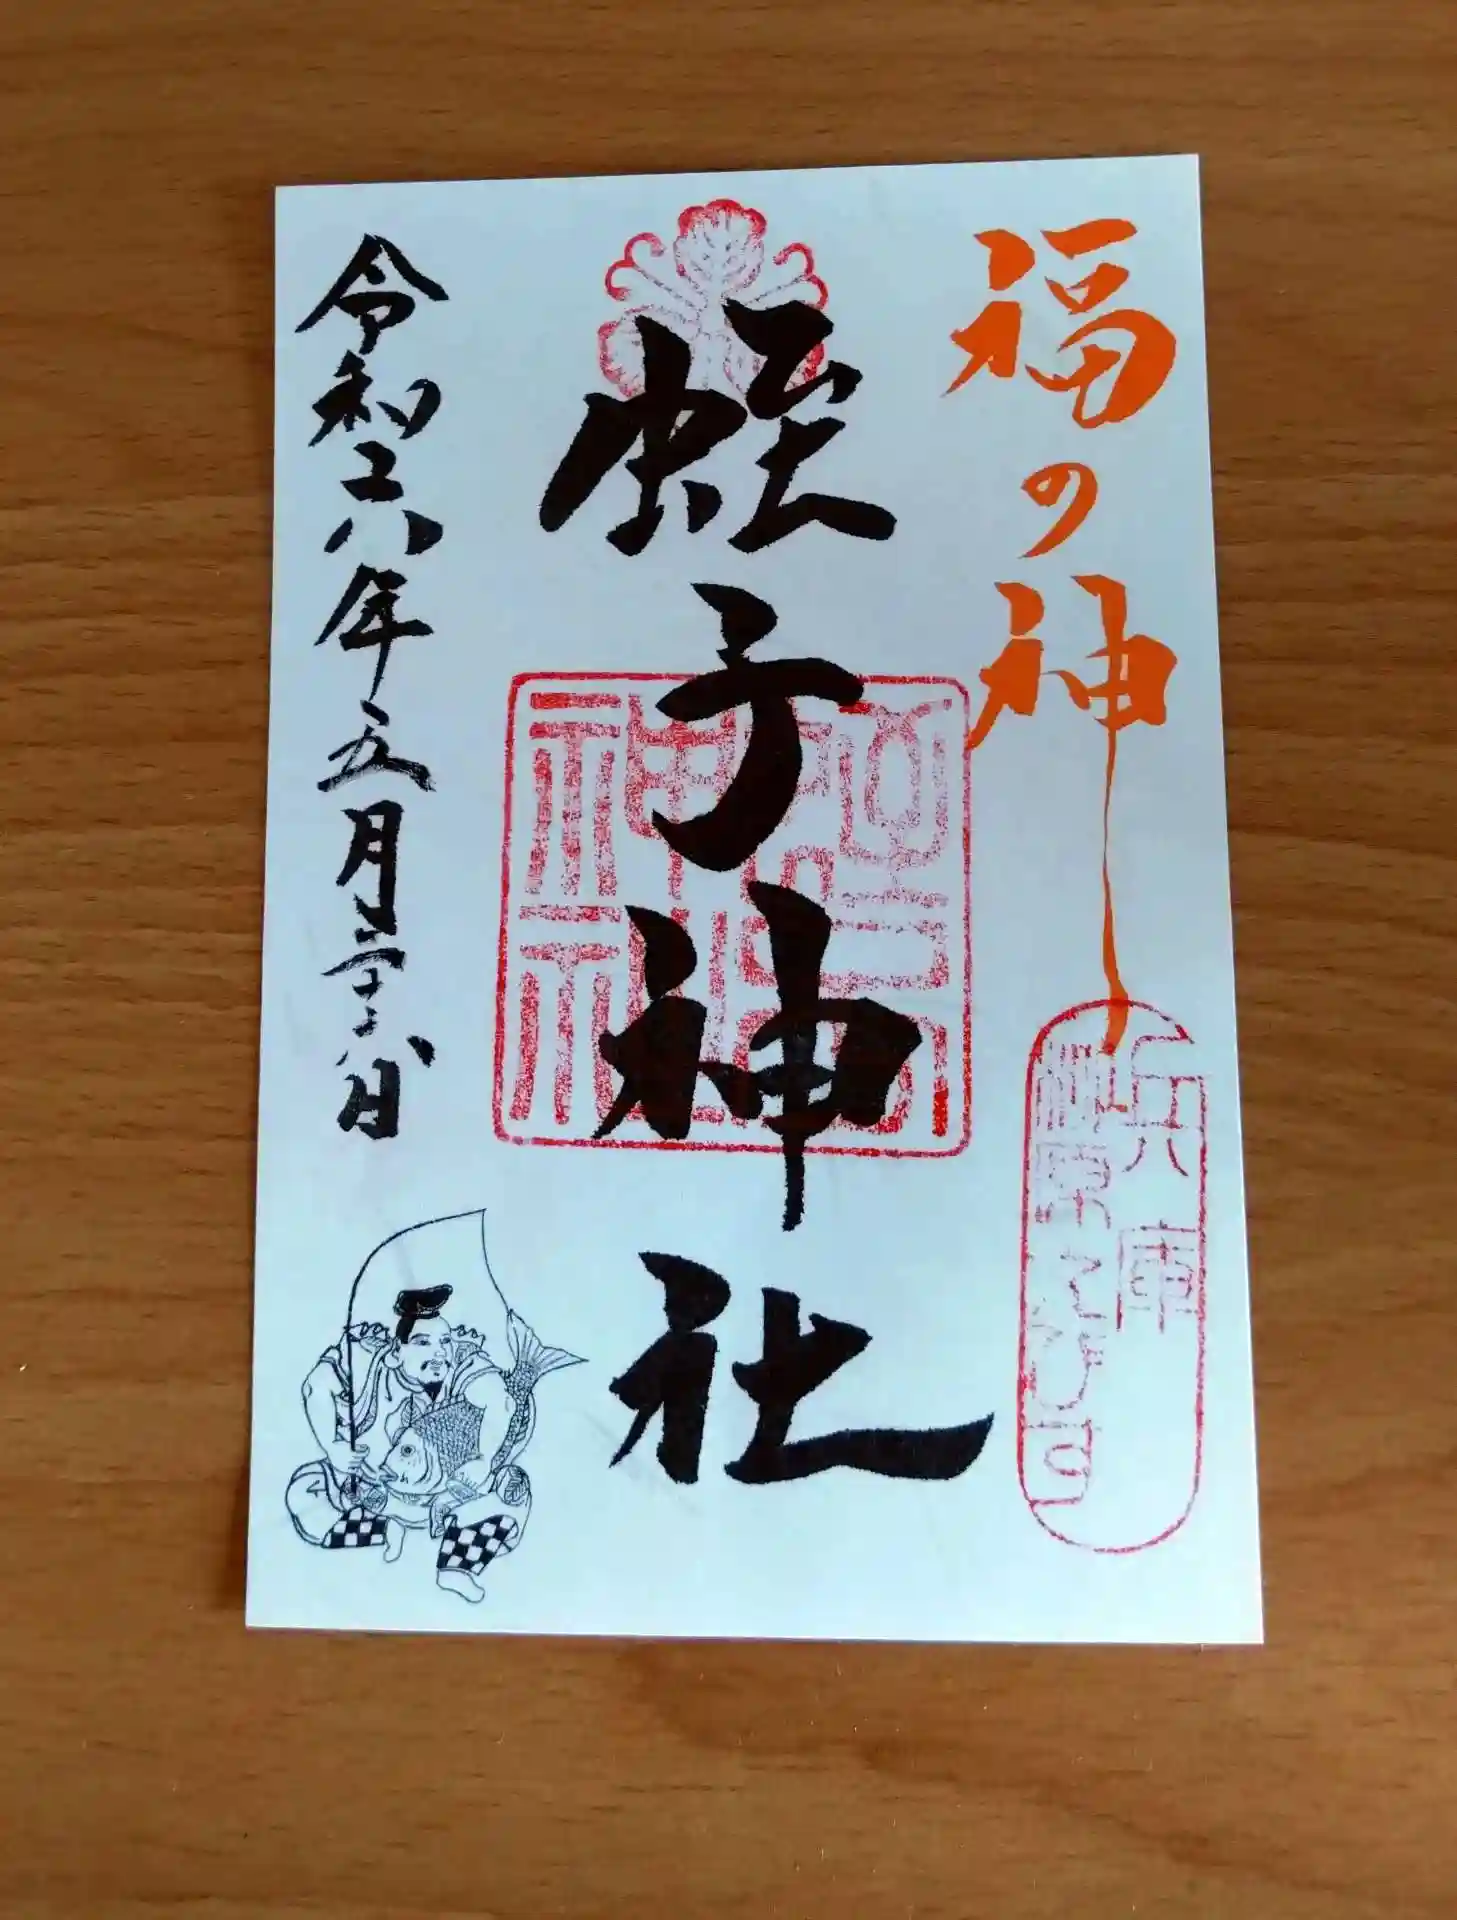 福の神
兵庫
柳原えびす宮
蛭子神社
蛭子神社
令和六年五月二十八日